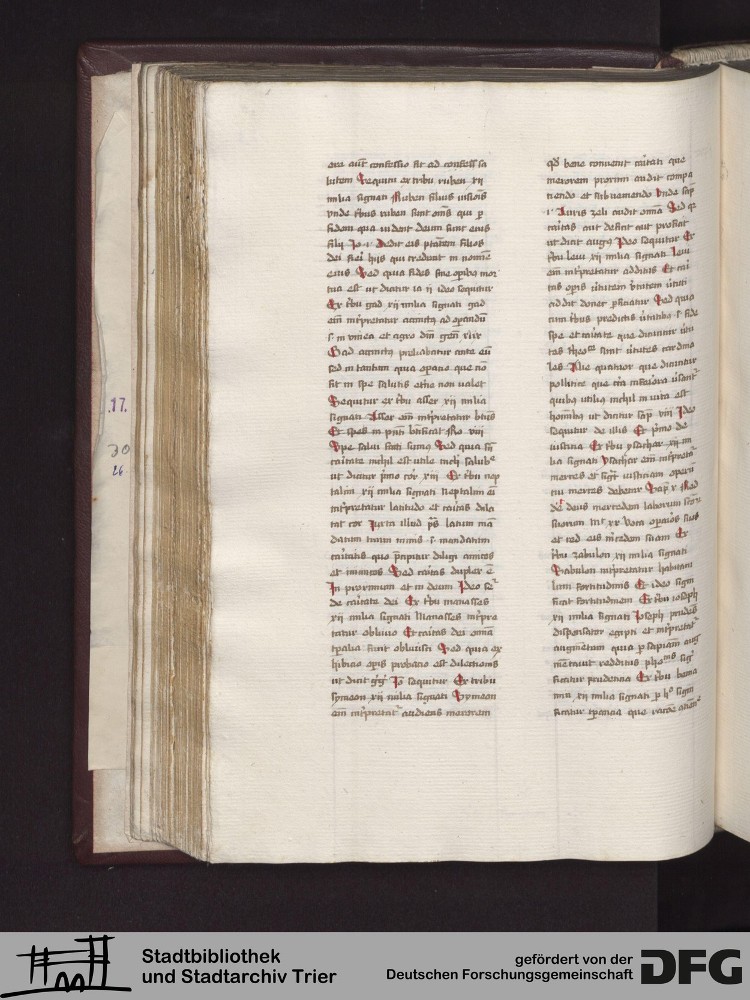 ore aut confessio fit ad confess sa
lutem Sequitur ex tribu ruben xii
milia signati Ruben filius visiois
vnde tbus ruben sunt oms qui p
fidem qua vident deum sunt eius
filij Jo i Dedit eis ptatem filios
dei fiei hijs qui credunt in nomine
eius Sed quia fides sine opibus mor
tua est ut dicitur ia ii ideo sequitur
Ex tbu gad xii milia signati gad
em interpretatur accinctus ad operandu
s in vinea et agro dni gen xlix
Gad accinctus preliabitur ante eu
sed in tantum quia operatio que no
fit in spe salutis eterne non valet
Sequitur ex tbu asser xii milia
signati Asser em interpretatur btus
Et spes in pnti btificat Ro viii
Spe salui facti sumus Sed quia sn
caritate nichil est utile
ut dicitur pimo cor xiii Ex tbu nep
talim xii milia signati Neptalim ei
interpretatur latitudo et caritas dila
tat cor Juxta illud ps latum man
datum tuum nimis s mandatum
caritatis quo pcipitur diligi amicos
et inimicos Sed caritas duplex e
In proximum et in deum Ideo se
de caritate dei Ex tbu manasses
xii milia signati Manasses interpre
tatur obliuio Et caritas dei omnia
tpalia facit obliuisci Sed quia ex
hibicio opis probatio est dilectionis
ut dicit g'g' Jo sequitur Ex tribu
symeon xii milia signati Symeon
em interpretatur audiens merorem
qd bene conuenit caritati que
merorem proximi audit compa
tiendo et subueniendo Vnde sap
i Auris zeli audit omia Sed qr
caritas aut deficit aut proficit
ut dicit augus Ideo sequitur Ex
tbu leui xii milia signati Leui
em interpretatur additus Et cari
tas opis virtutem virtutem virtuti
addit donec pficiatur Sed quia
cum tbus predictis virtutibus s fide
spe et caritate que dicuntur virtu
tes theoce sunt virtutes cardina
les Alie quatuor que dicuntur
pollitice que circa inferiora versantur
quibus utilius nichil in vita est
hominibus ut dicitur sap viii Ideo
sequitur de illis Et primo de
iusticia Ex tbu ysachar xii mi
lia signati Ysachar em interpretatur
merces et signat iusticiam operum
cui merces debetur Sap x Red
det deus mercedem laborum sctor
suorum mt xx Voca operarios tuos
et red eis mercedem suam Ex
tbu zabulon xii milia signati
Zabulon interpretatur habitacu
lum fortitudinis Et ideo signi
ficat fortitudinem Ex tbu ioseph
xii milia signati Joseph prudens
dispensator egypti et interpretatur
augmentum quia p sapiam aug
mentauit redditus pharaonis sig
ficatur prudencia Ex tbu benia
min xii milia signati p quem signi
ficatur tpancia que
.17.
30
26
Stadtbibliothek
und Stadtarchiv Trier
gefördert von der
Deutschen Forschungsgemeinschaft
DFG